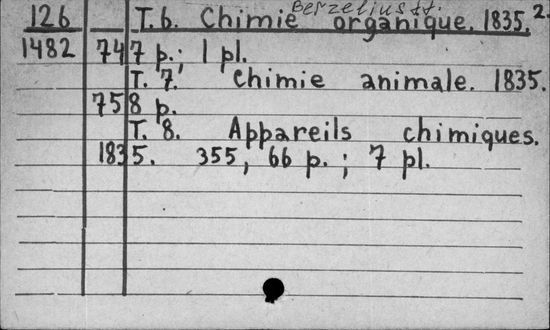 Berzelius
126 T. 6. Chimie organique. 1835. 2.
1482 747 p.; 1 pl.
T. 7. Chimie animale. 1835.
758 p.
T. 8. Appareils chimiques.
1835. 355, 66 p.; 7 pl.